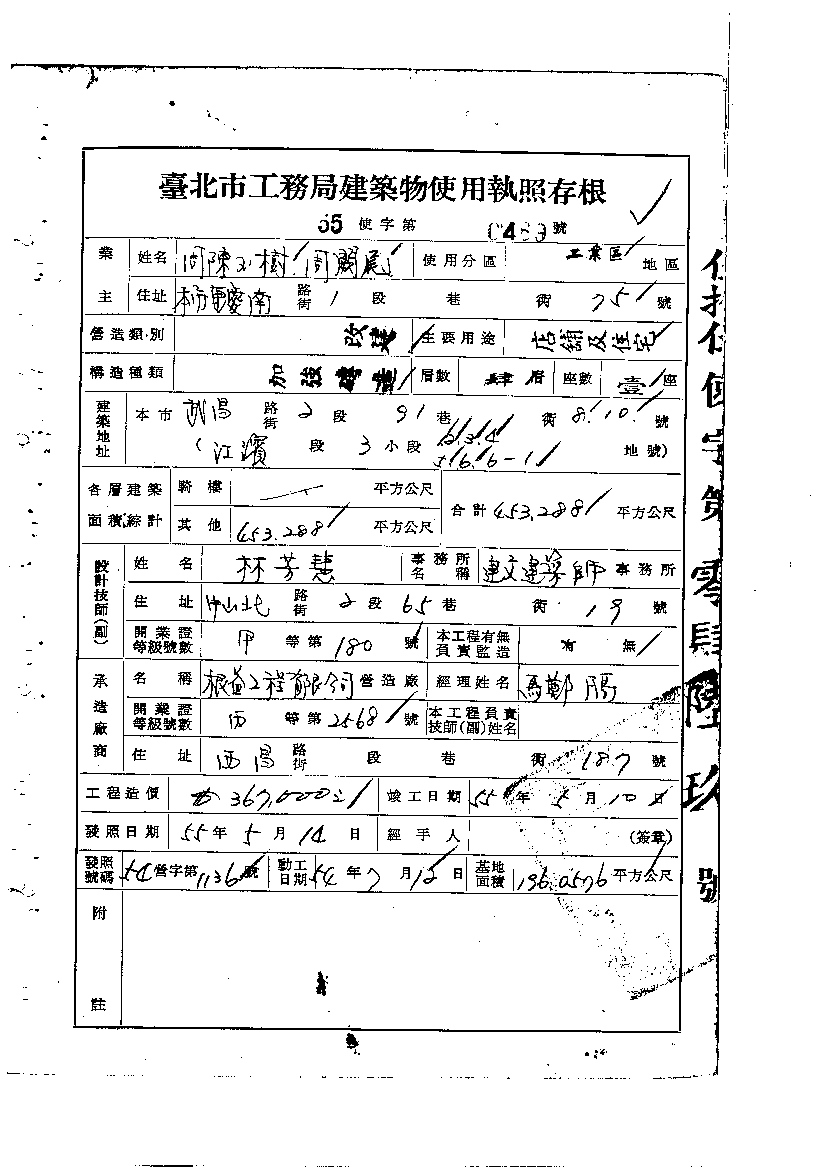 臺北市工務局建築物使用執照存根
55 使字第 0469 號
業主 姓名 周陳玉樹 周 使用分區 工業區 地區
住址 本市重慶南 路街 1 段 巷 衖 75 號
營造類別 改建 主要用途 店鋪及住宅
構造種類 加強磚造 層數 肆層 座數 壹 座
建築地址 本市 路街 2 段 91 巷 衖 8.10. 號
(江濱 段 3 小段 2.3.4 5.6.6-1 地號)
各層建築面積綜計 騎樓 平方公尺 合計 453.288 平方公尺
其他 453.288 平方公尺
設計技師(副) 姓名 林芳慧 事務所名稱 建文建築師 事務所
住址 中山北 路街 2 段 65 巷 衖 19 號
開業證等級號數 甲 等第 180 號 本工程有無負責監造 有 無
承造廠商 名稱 根益工程有限公司 營造廠 經理姓名 馬鄭
開業證等級號數 丙 等第 2568 號 本工程負責技師(副)姓名
住址 西昌 路街 段 巷 衖 187 號
工程造價 367,000元 竣工日期 55 年 5 月 10 日
發照日期 55 年 5 月 14 日 經手人 (簽章)
發照號碼 54 營字第 1136 號 動工日期 54 年 7 月 12 日 基地面積 196.0576 平方公尺
附註
使字第零肆陸玖號